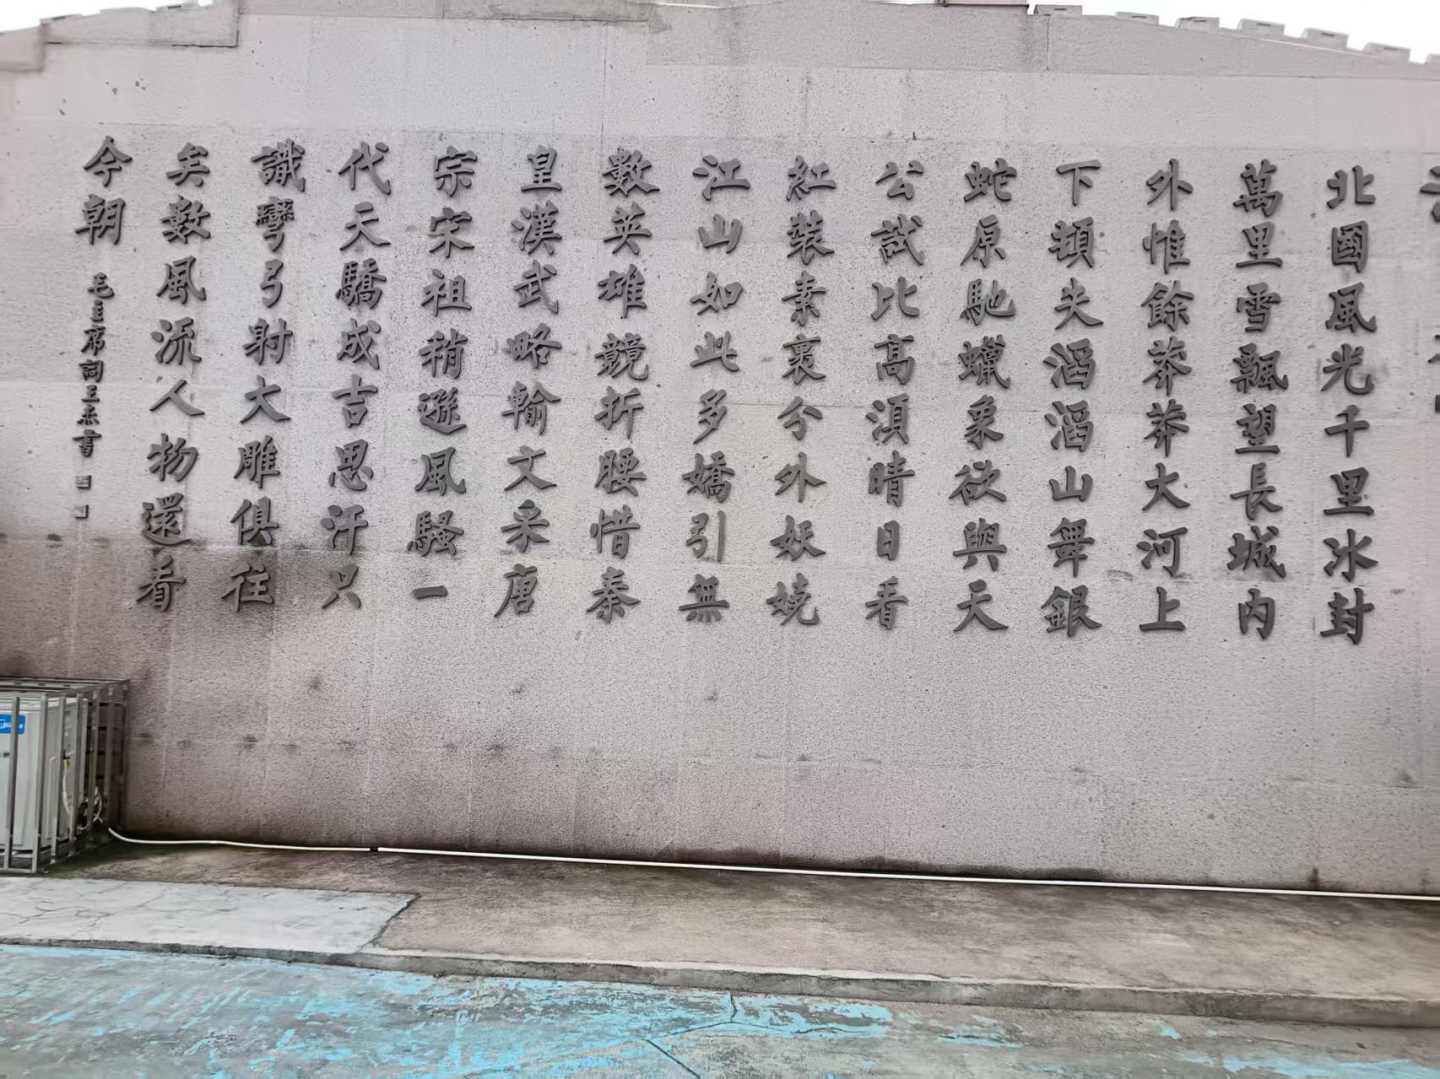 北國風光千里冰封
萬里雪飄望長城內
外惟餘莽莽大河上
下頓失滔滔山舞銀
蛇原馳蠟象欲與天
公試比高須晴日看
紅裝素裹分外妖嬈
江山如此多嬌引無
數英雄競折腰惜秦
皇漢武略輸文采唐
宗宋祖稍遜風騷一
代天驕成吉思汗只
識彎弓射大雕俱往
矣數風流人物還看
今朝
毛主席詞王杰書